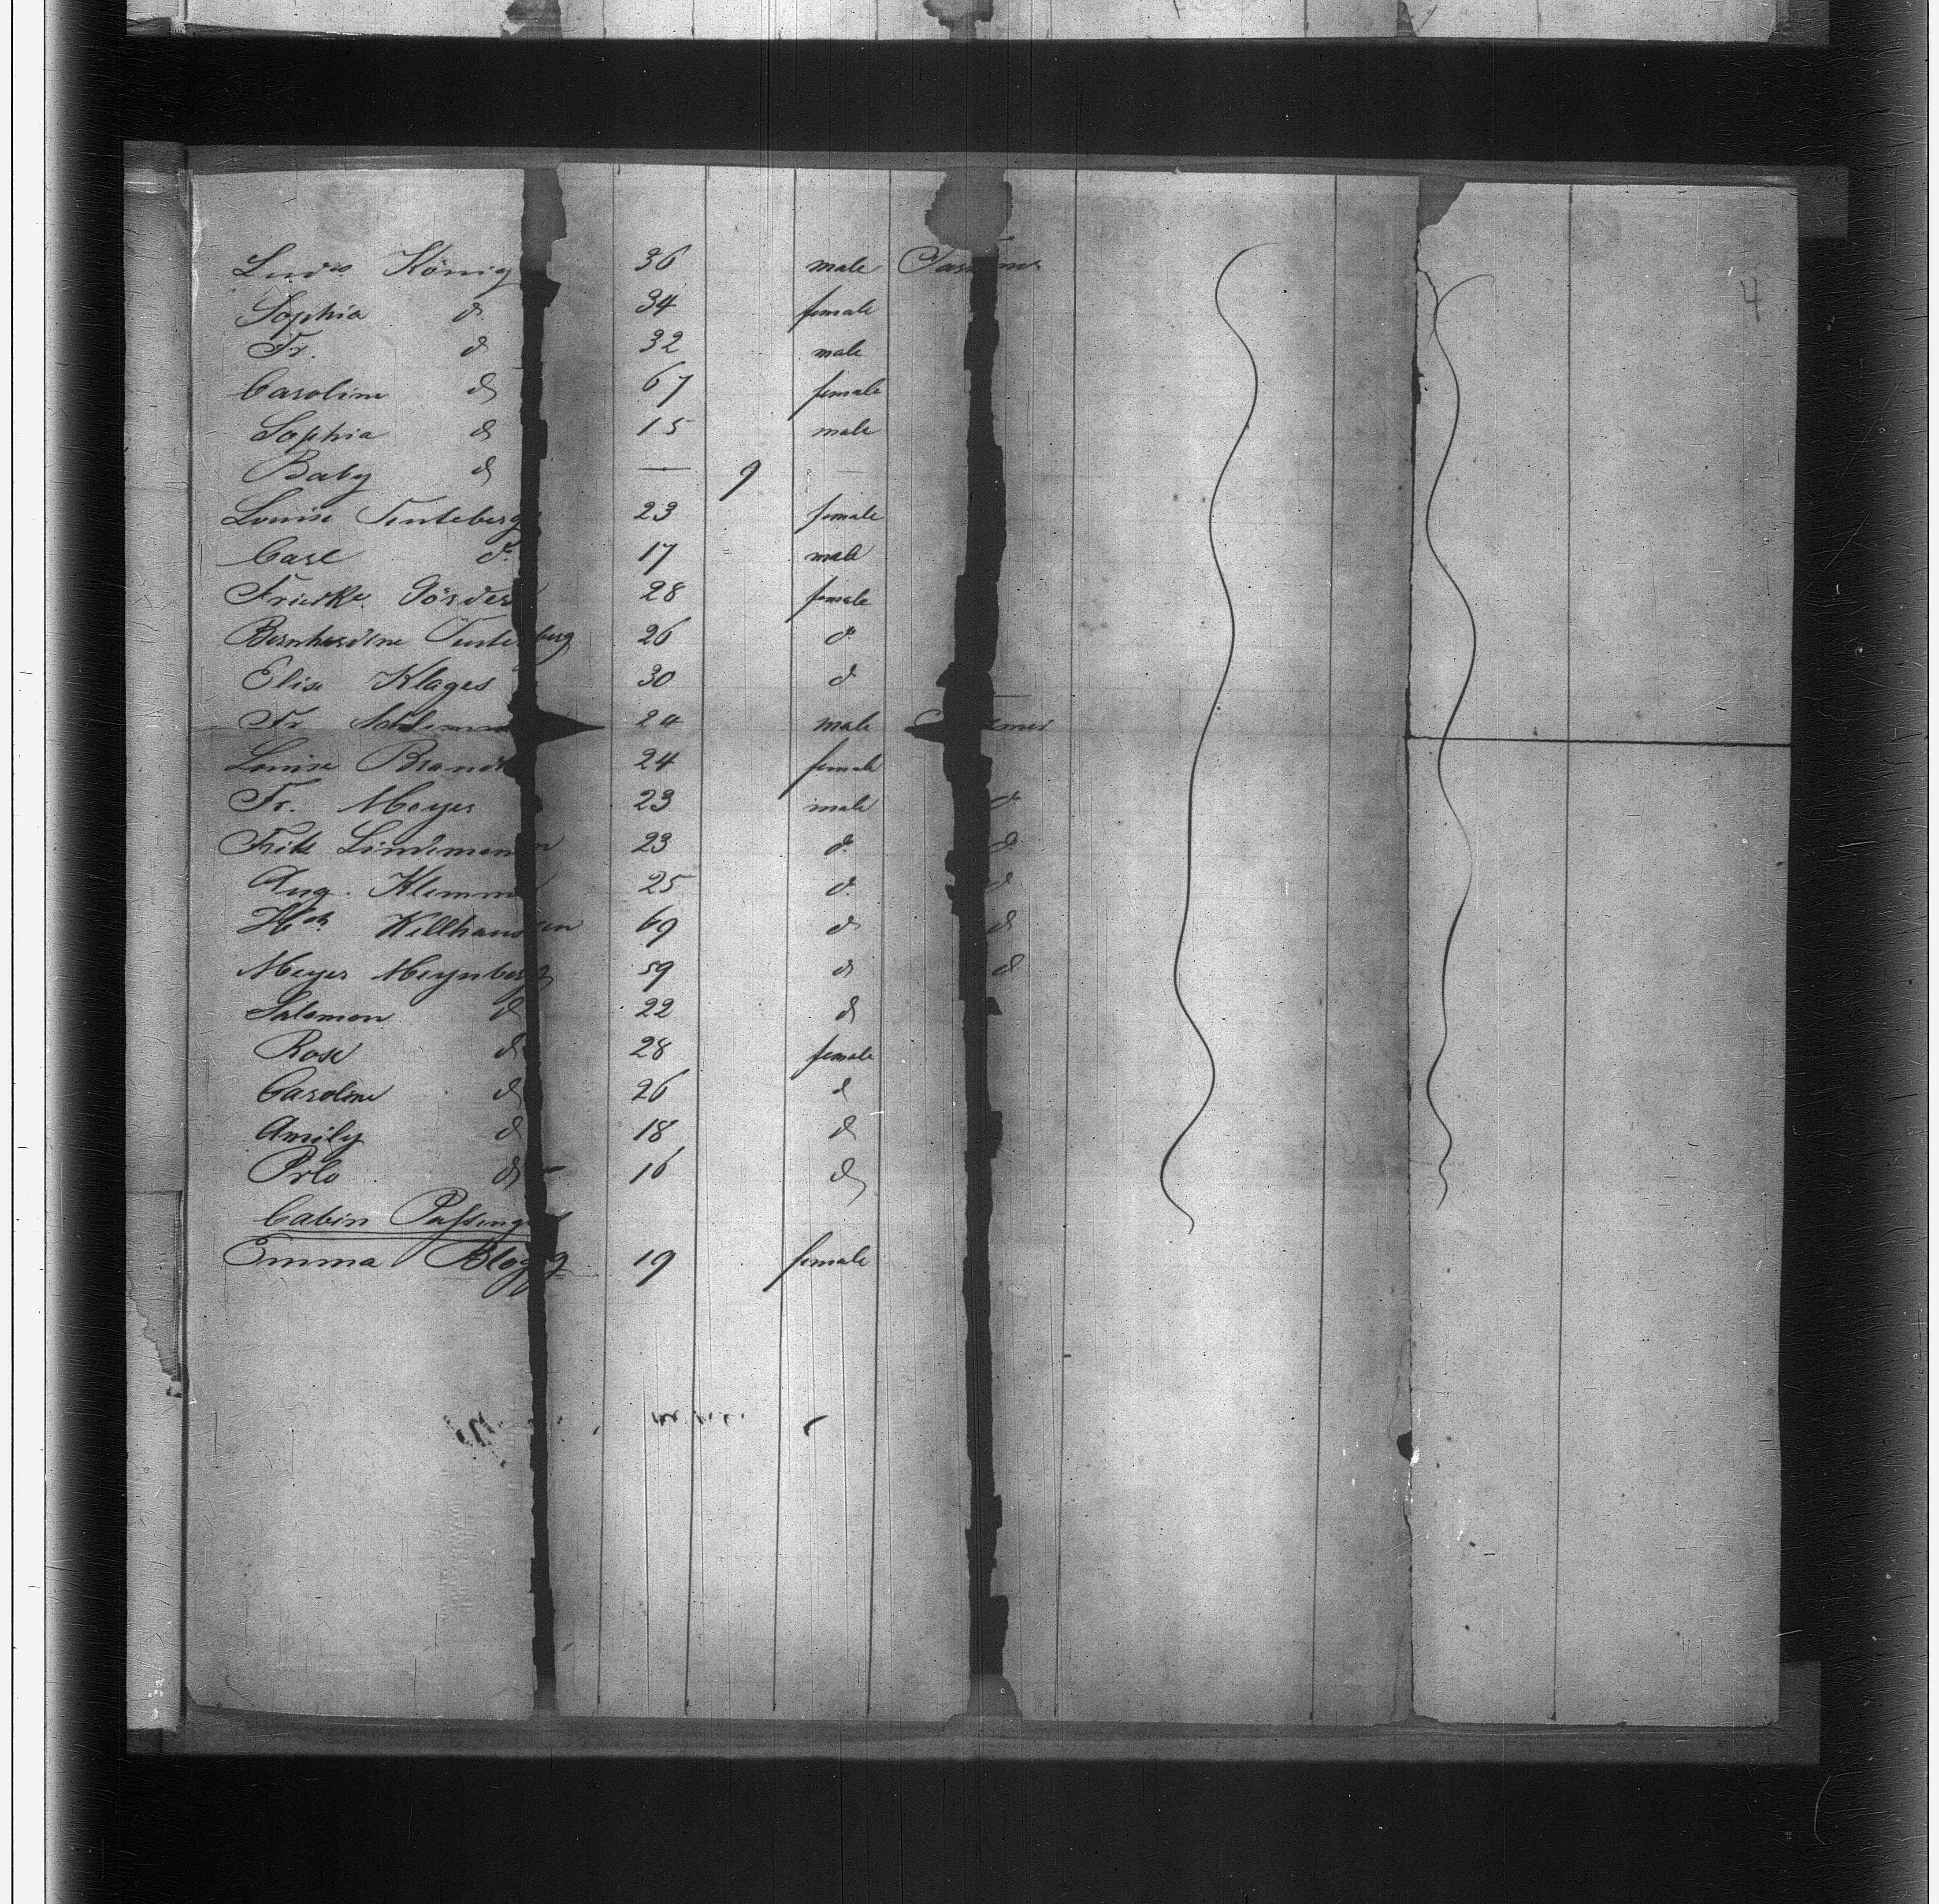 Ludw König 36 male
Sophia do 34 female
Fr. do 32 male
Caroline do 67 female
Sophia do 15 male
Baby do — 9 —
Louise Tenteberg 23 female
Carl do 17 male
Friedke Görder 28 female
Bernhardine Tenteberg 26 do
Elise Klages 30 do
Fr 24 male
Louise Brandt 24 female
Fr. Meyer 23 male do
Fritz Lindemann 23 do do
Aug. Klemme 25 do do
Hch Killhausen 69 do do
Meyer Meynberg 59 do do
Salomon do 22 do
Rose do 28 female
Caroline do 26 do
Amily do 18 do
do 16 do
Cabin Passenger
Emma Blogg 19 female
4